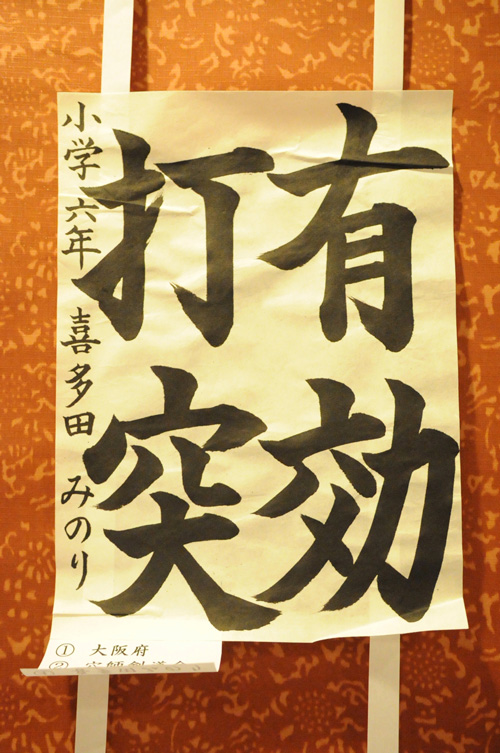 有効
打突
小学六年 喜多田 みのり
① 大阪府
②